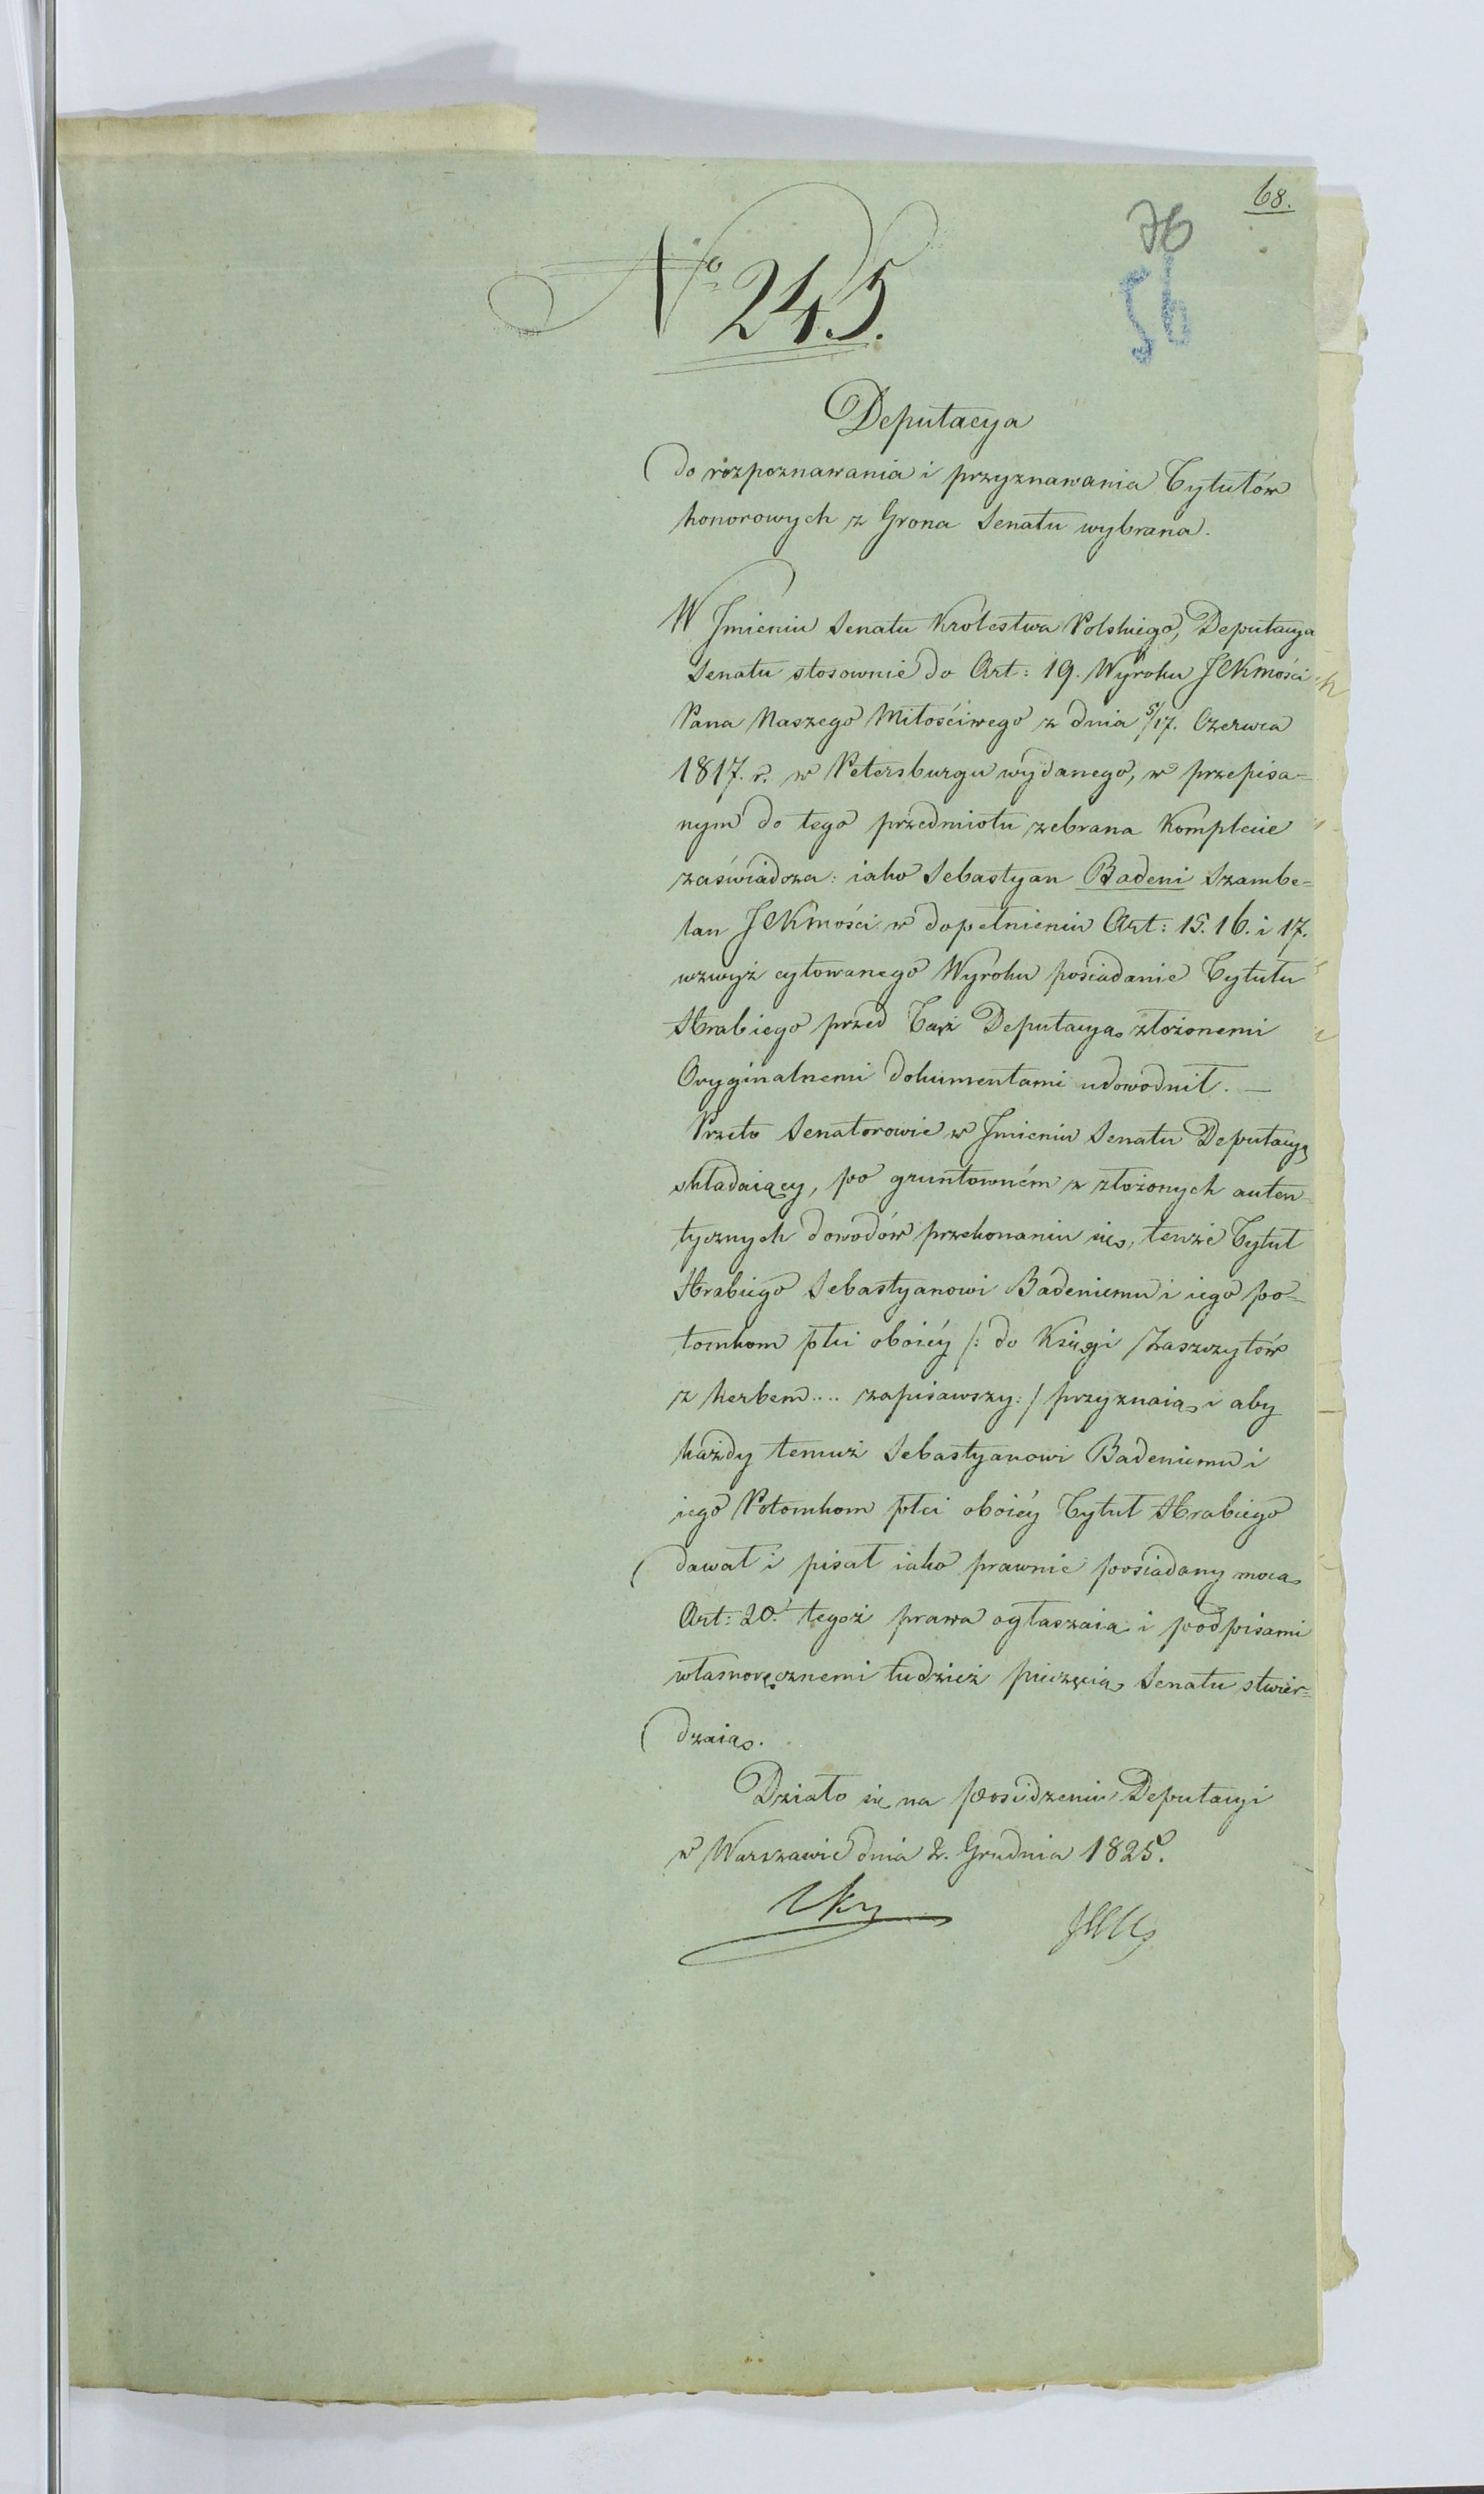 68.
76
56
No 245.
Deputacya
do rozpoznawania i przyznawania Tytułów
honorowych z Grona Senatu wybrana.
W Jmieniu Senatu Królestwa Polskiego, Deputacya
Senatu stosownie do Art: 19. Wyroku JCKmości
Pana Naszego Miłościwego z dnia 5/17. Czerwca
1817. r. w Petersburgu wydanego, w przepisa=
nym do tego przedmiotu zebrana Komplecie
zaświadcza: iako Sebastyan Badeni Szambe=
lan JCKmości w dopełnieniu Art: 15. 16. i 17.
wzwyż cytowanego Wyroku posiadanie Tytułu
Hrabiego przed Taż Deputacyą złożonemi
Oryginalnemi dokumentami udowodnił. —
Przeto Senatorowie w Jmieniu Senatu Deputacyą
składaiący, po gruntowném z złożonych auten=
tycznych dowodów przekonaniu się, tenże Tytuł
Hrabiego Sebastyanowi Badeniemu i iego po=
tomkom płci oboiéy /: do Księgi Zaszczytów
z herbem .... zapisawszy: / przyznaią i aby
każdy temuż Sebastyanowi Badeniemu i
iego Potomkom płci oboiéy Tytuł Hrabiego
dawał i pisał iako prawnie posiadany mocą
Art: 20. tegoż prawa ogłaszaią i podpisami
własnoręcznemi tudzież pieczęcią Senatu stwier=
dzaią.
Działo się na posiedzeniu Deputacyi
w Warszawie dnia 2. Grudnia 1825.